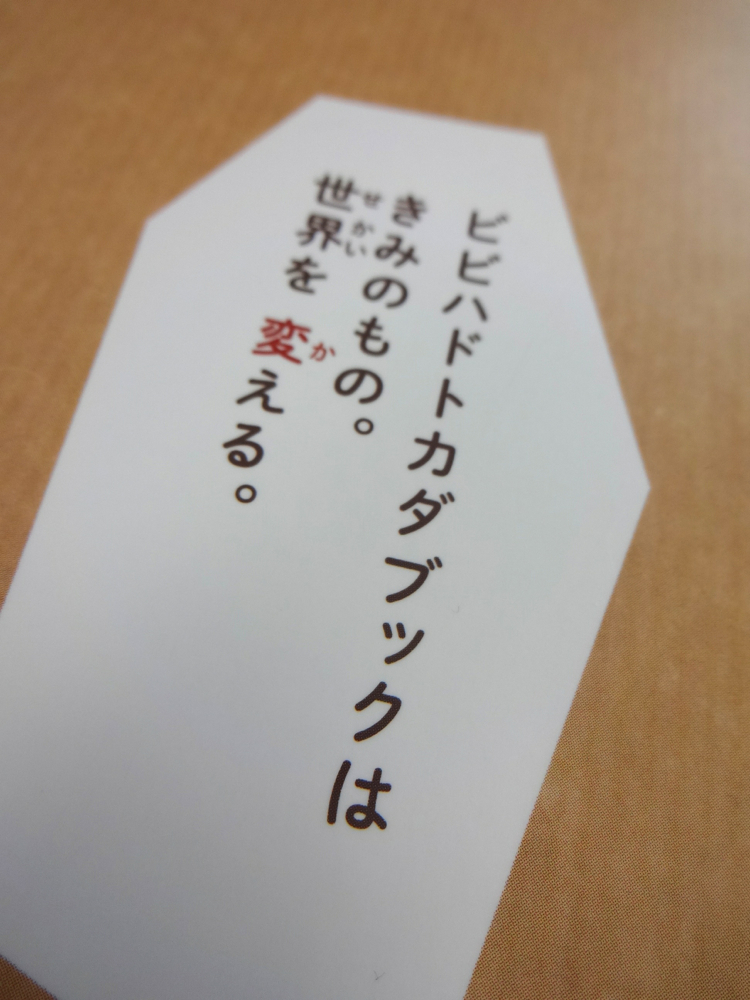 ビビハドトカダブックは
きみのもの。
世界を 変える。
せかい
か